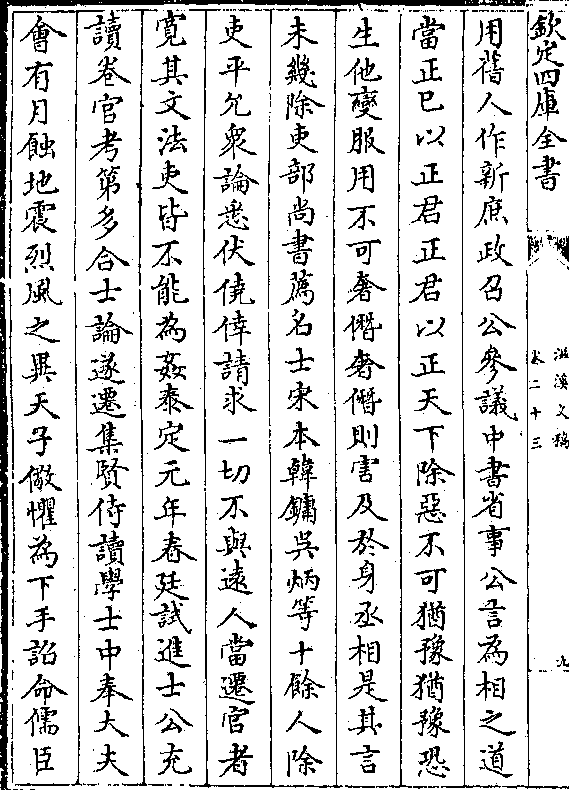 欽定四庫全書
滋溪文稿
卷二十三
九
用舊人作新庶政召公參議中書省事公言為相之道
當正已以正君正君以正天下除惡不可猶豫猶豫恐
生他變服用不可奢僭奢僭則害及於身丞相是其言
未幾除吏部尚書薦名士宋本韓鏞吳炳等十餘人除
吏平允衆論悉伏僥倖請求一切不與逺人當遷官者
寛其文法吏皆不能為姦泰定元年春廷試進士公充
讀卷官考第多合士論遂遷集賢侍讀學士中奉大夫
會有月蝕地震烈風之異天子儆懼為下手詔命儒臣